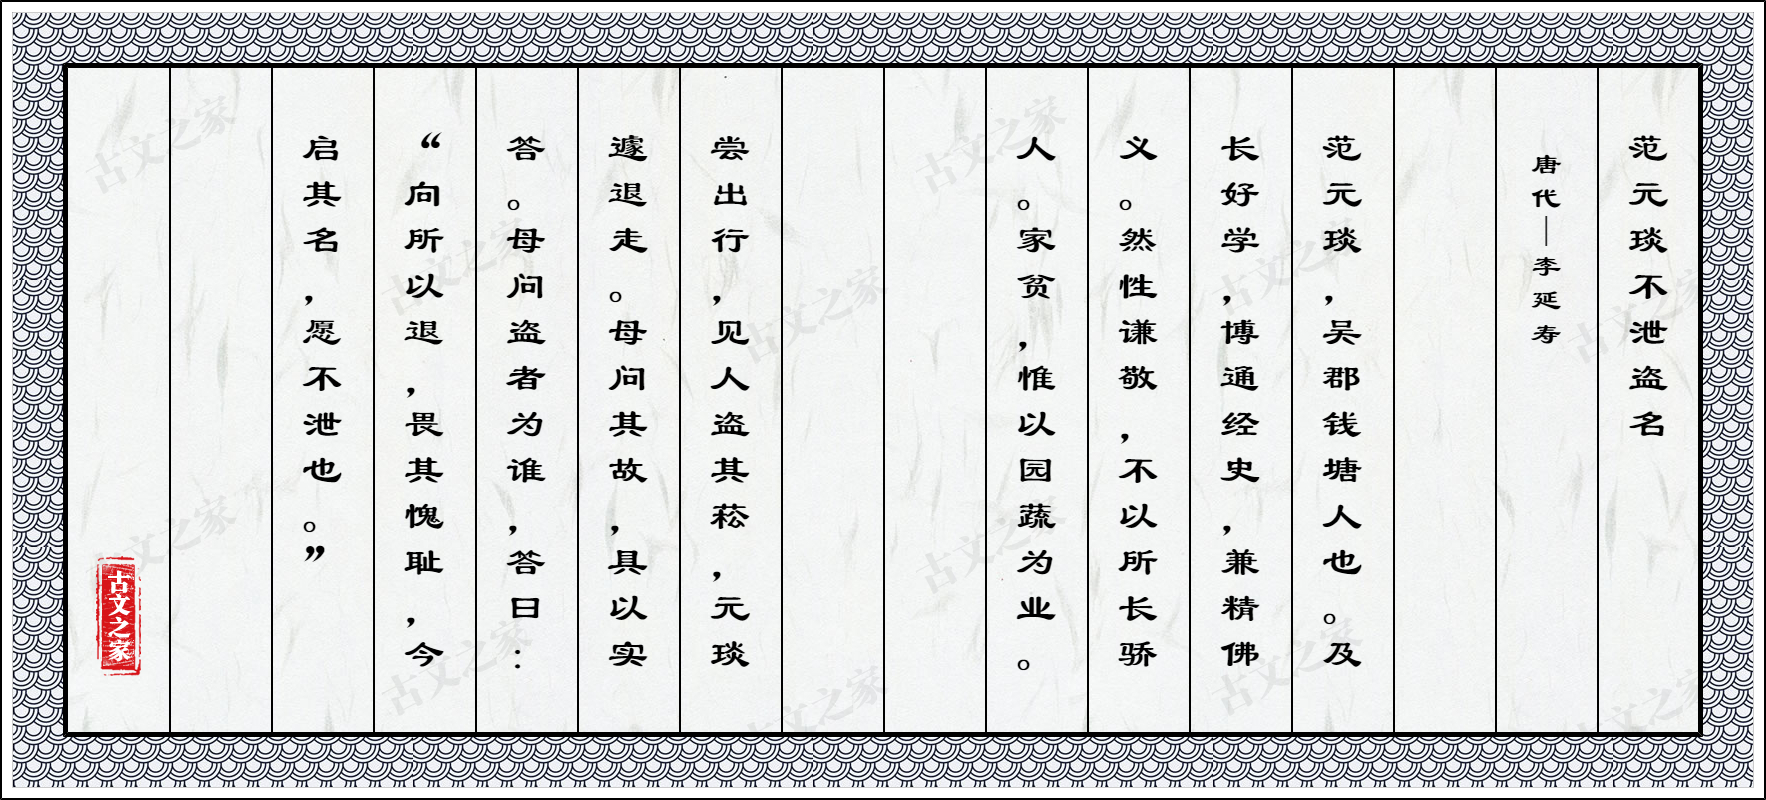 范元琰不泄盗名
唐代—李延寿
范元琰，吴郡钱塘人也。及
长好学，博通经史，兼精佛
义。然性谦敬，不以所长骄
人。家贫，惟以园蔬为业。
尝出行，见人盗其菘，元琰
遽退走。母问其故，具以实
答。母问盗者为谁，答曰：
“向所以退，畏其愧耻，今
启其名，愿不泄也。”
古文之家